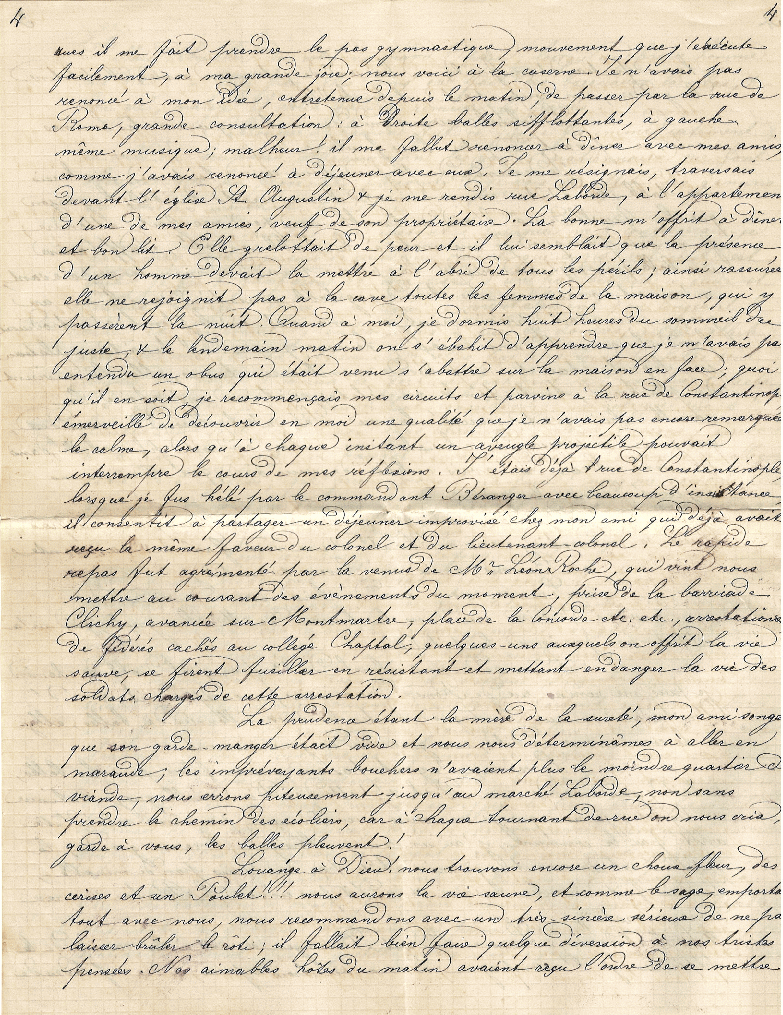 4 4
ques il me fait prendre le pas gymnastique, mouvement que j'exécute
facilement, à ma grande joie; nous voici à la caserne. Je n'avais pas
renoncé à mon idée, entretenue depuis le matin, de passer par la rue de
Rome, grande consultation: à Droite balles sifflottantes, à gauche
même musique; malheur! il me fallut renoncer à dîner avec mes amis,
comme j'avais renoncé à déjeuner avec eux. Je me résignais, traversais
devant l'église St Augustin & je me rendis rue Laborde, à l'appartemen
d'une de mes amies, veuf de son propriétaire. La bonne m'offrit à dîner
et bon lit. Elle grelottait de peur et il lui semblait que la présence
d'un homme devait la mettre à l'abri de tous les périls; ainsi rassurée
elle ne rejoignit pas à la cave toutes les femmes de la maison, qui y
passèrent la nuit. Quand à moi, je dormis huit heures du sommeil du
juste, & le lendemain matin on s'ébahit d'apprendre que je n'avais pa
entendu un obus qui était venu s'abattre sur la maison en face; quoi
qu'il en soit, je recommençais mes circuits et parvins à la rue de Constantinop
émerveillé de découvrir en moi une qualité que je n'avais pas encore remarquée
le calme, alors qu'à chaque instant un aveugle projectile pouvait
interrompre le cours de mes réflexions. J'étais déjà rue de Constantinople
lorsque je fus hélé par le commandant Béranger avec beaucoup d'insistance
il consentit à partager un déjeuner improvisé chez mon ami qui déjà avait
reçu la même faveur du colonel et du lieutenant-colonel. Le rapide
repas fut agrémenté par la venue de Mr Léon Roche, qui vint nous
mettre au courant des évènements du moment, prise de la barricade
Clichy, avancée sur Montmartre, place de la Concorde etc. etc., arrestations
de fédérés cachés au collège Chaptal, quelques-uns auxquels on offrit la vie
sauve, se firent fusiller en résistant et mettant en danger la vie des
soldats chargés de cette arrestation.
La prudence étant la mère de la sureté, mon ami songe
que son garde-manger était vide et nous nous déterminâmes à aller en
maraude; les imprévoyants bouchers n'avaient plus le moindre quartier d
viande, nous errons piteusement jusqu'au marché Laborde, non sans
prendre le chemin des écoliers, car à chaque tournant de rue on nous cria,
garde à vous, les balles pleuvent!
Louange à Dieu! nous trouvons encore un choux-fleur, des
cerises et un Poulet!!! nous aurons la vie sauve, et comme le sage, emporta
tout avec nous, nous recommandons avec un très-sincère sérieux de ne pa
laisser brûler le rôti; il fallait bien faire quelque diversion à nos tristes
pensées. Nos aimables hôtes du matin avaient reçu l'ordre de se mettre